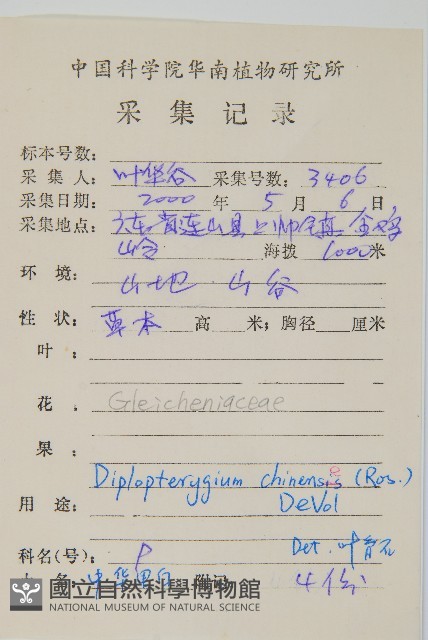 中国科学院华南植物研究所
采集记录
标本号数：
采集人：叶华谷 采集号数：3406
采集日期：2000 年 5 月 6 日，
采集地点：广东省连山县上帅镇金鸡
山谷 海拨 1000 米
环境：山地 山谷
性状：草本 高 米；胸径 厘米
叶：
花． Gleicheniaceae
果．
Diplopterygium chinense (Ros.)
用途： DeVol
科名(号)： P Det. 叶育石
名：中华里白 附记 4份
國立自然科學博物館
NATIONAL MUSEUM OF NATURAL SCIENCE